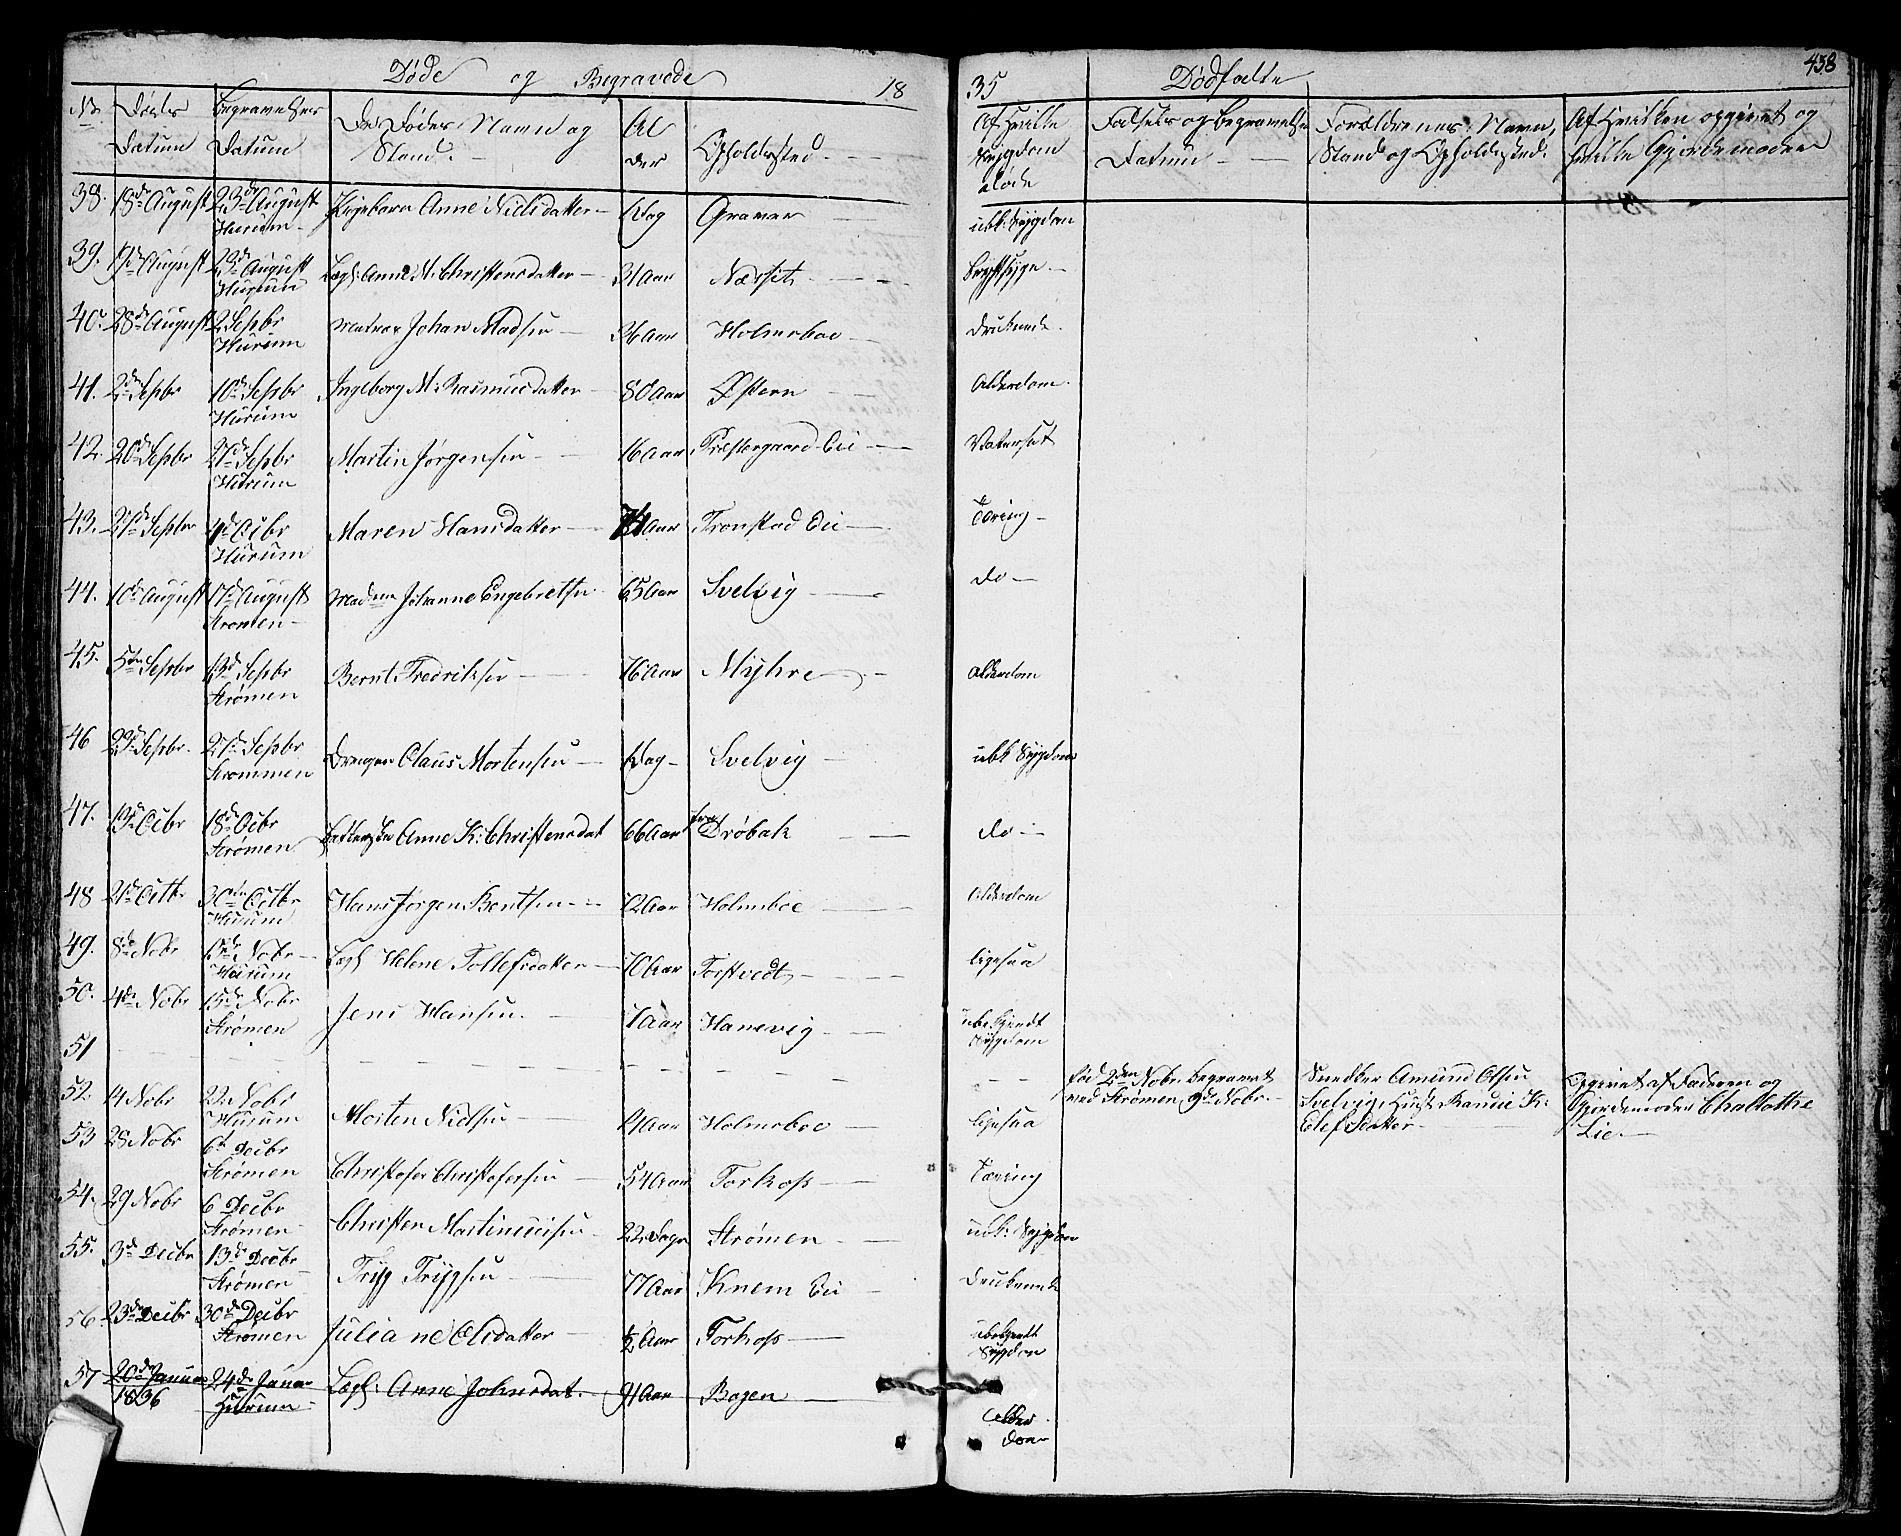 Døde og Begravede 18
35 Dødfødte 438
No Døds Datum Begravelses Datum Den Dødes Navn og Stand. Al der Opholdssted.
Af Hvilke Sygdom døde Fødsels og Begravelses Datum Forældrenes Navn, Stand og Opholdssted. Af Hvilken opgivet og hvilke Gjordemoder
38. 18de August 23de August Hurum Pigebarn Anne Nielsdatter 1 Dag Graver ubk: Sygdom
39. 19de August 23de August Hurum Lægl: Anne M: Christensdatter 31 Aar Næsset Brystsyge
40. 28de August 2 Sepbr Hurum Matros Johan Madsen 36 Aar Holmsboe Druknede
41. 2de Sepbr 10de Sepbr Hurum Ingeborg M: Rasmusdatter 80 Aar Østern Alderdom
42. 20de Sepbr 27de Sepbr Hurum Martin Jørgensen 16 Aar Præstegaard Eie Vatersot
43. 27de Sepbr 4de Octbr Hurum Maren Hansdatter 74 Aar Tronstad Eie Tæring
44. 10de August 17de August Strømen Madme Johanne Engebretsen 65 Aar Svelvig do
45. 5te Sepbr 13de Sepbr Strømen Bernt Fredriksen 76 Aar Myhre Alderdom
46 23de Sepbr 27de Sepbr Strømmen Drengen Claus Mortensen 1 Dag Svelvig ubk Sygdom
47. 13de Octbr 18de Octbr Strømen Anne K: Christensdat 66 Aar fra Drøbak do
48 21de Octbr 30te Octbr Hurum Hans Jørgen Bentsen 72 Aar Holmsboe Alderdom
49. 8de Nobr 15de Nobr Hurum Lægl Helene Tollefsdatter 70 Aar Tofstvedt ligesaa
50. 4de Nobr 15de Nobr Strømen Jens Hansen 7 Aar Hanevig ubekjendt Sygdom
51 født 2den Nobr. begravet ved Strømen 9de Nobr. Snedker Amund Olsen Svelvig, Hust. Randie K: Olefsdatter Opgivet af Faderen og Gjordemoder Challotte Lie
52. 14 Nobr 22 Nobr Hurum Morten Nielsen Aar Holmsboe ligesaa
53 28 Nobr 6te Decbr Strømen Christofer Christofersen 54 Aar Torkop Tæring
54. 29 Nobr 6 Decbr Strømen Christen Martinussen 22 Dage Strømen ubk: Sygdom
55. 3de Decbr 13de Decbr Strømen Tryg Trygsen 77 Aar Knem Eie Druknede
56 23de Decbr 30de Decbr Strømen Juliane Olsdatter 1/2 Aar Torkop ubekjendt Sygdom
57 20de Januar 1836 24de Januar Hurum Lægl: Anne Johnsdat. 91 Aar Bogen Alderdom